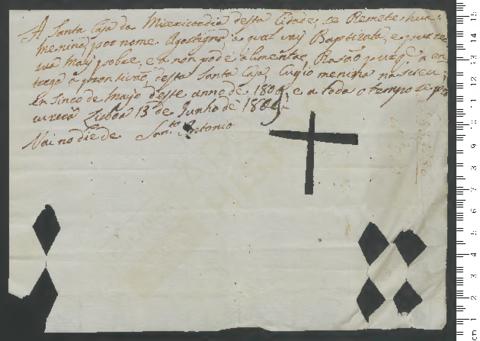 A Santa Caza da Misericordia desta Cidade, se Remete huma
menina, por nome a qual vay Baptizada, e por ter
sua may pobre, e a não pode alimentar, Razão porque a en
trega desta Santa Caza, Cuja menina nasceu
Em sinco de Mayo deste anne de 1806, e a todo o tempo se pro
curará Lisboa 13 de Junho de 1806
Vai no dia de Santo Antonio